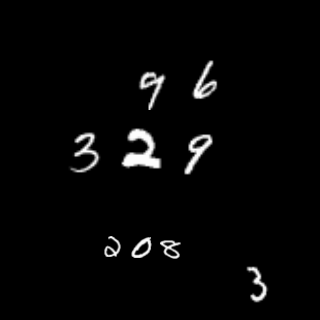 96
329
208
3